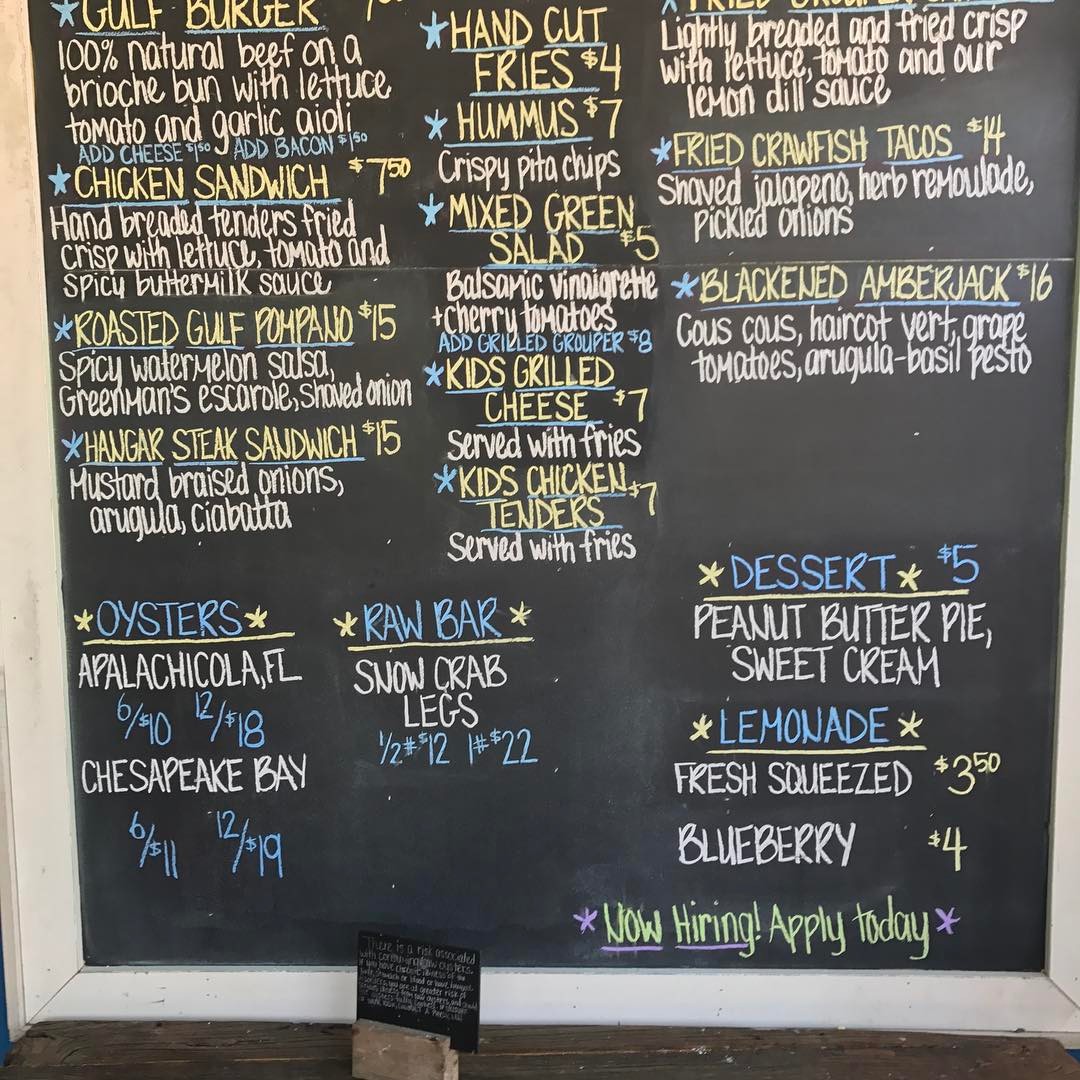 GULF BURGER
100% natural beef on a
brioche bun with lettuce
tomato and garlic aioli
ADD CHEESE $1.50 ADD BACON $1.50
CHICKEN SANDWICH $7.50
Hand breaded tenders fried
crisp with lettuce, tomato and
spicy buttermilk sauce
ROASTED GULF POMPANO $15
Spicy watermelon salsa,
Greenman's escarole, shaved onion
HANGAR STEAK SANDWICH $15
Mustard braised onions,
arugula, ciabatta
HAND CUT
FRIES $4
HUMMUS $7
Crispy pita chips
MIXED GREEN
SALAD $5
Balsamic vinaigrette
+cherry tomatoes
ADD GRILLED GROUPER $8
KIDS GRILLED
CHEESE $7
Served with fries
KIDS CHICKEN
TENDERS $7
Served with fries
Lightly breaded and fried crisp
with lettuce, tomato and our
lemon dill sauce
FRIED CRAWFISH TACOS $14
Shaved jalapeno, herb remoulade,
pickled onions
BLACKENED AMBERJACK $16
Cous cous, haircot vert, grape
tomatoes, arugula-basil pesto
OYSTERS
APALACHICOLA, FL
6/$10 12/$18
CHESAPEAKE BAY
6/$11 12/$19
RAW BAR
SNOW CRAB
LEGS
1/2#$12 1#$22
DESSERT $5
PEANUT BUTTER PIE,
SWEET CREAM
LEMONADE
FRESH SQUEEZED $3.50
BLUEBERRY $4
Now Hiring! Apply today
There is a risk associated